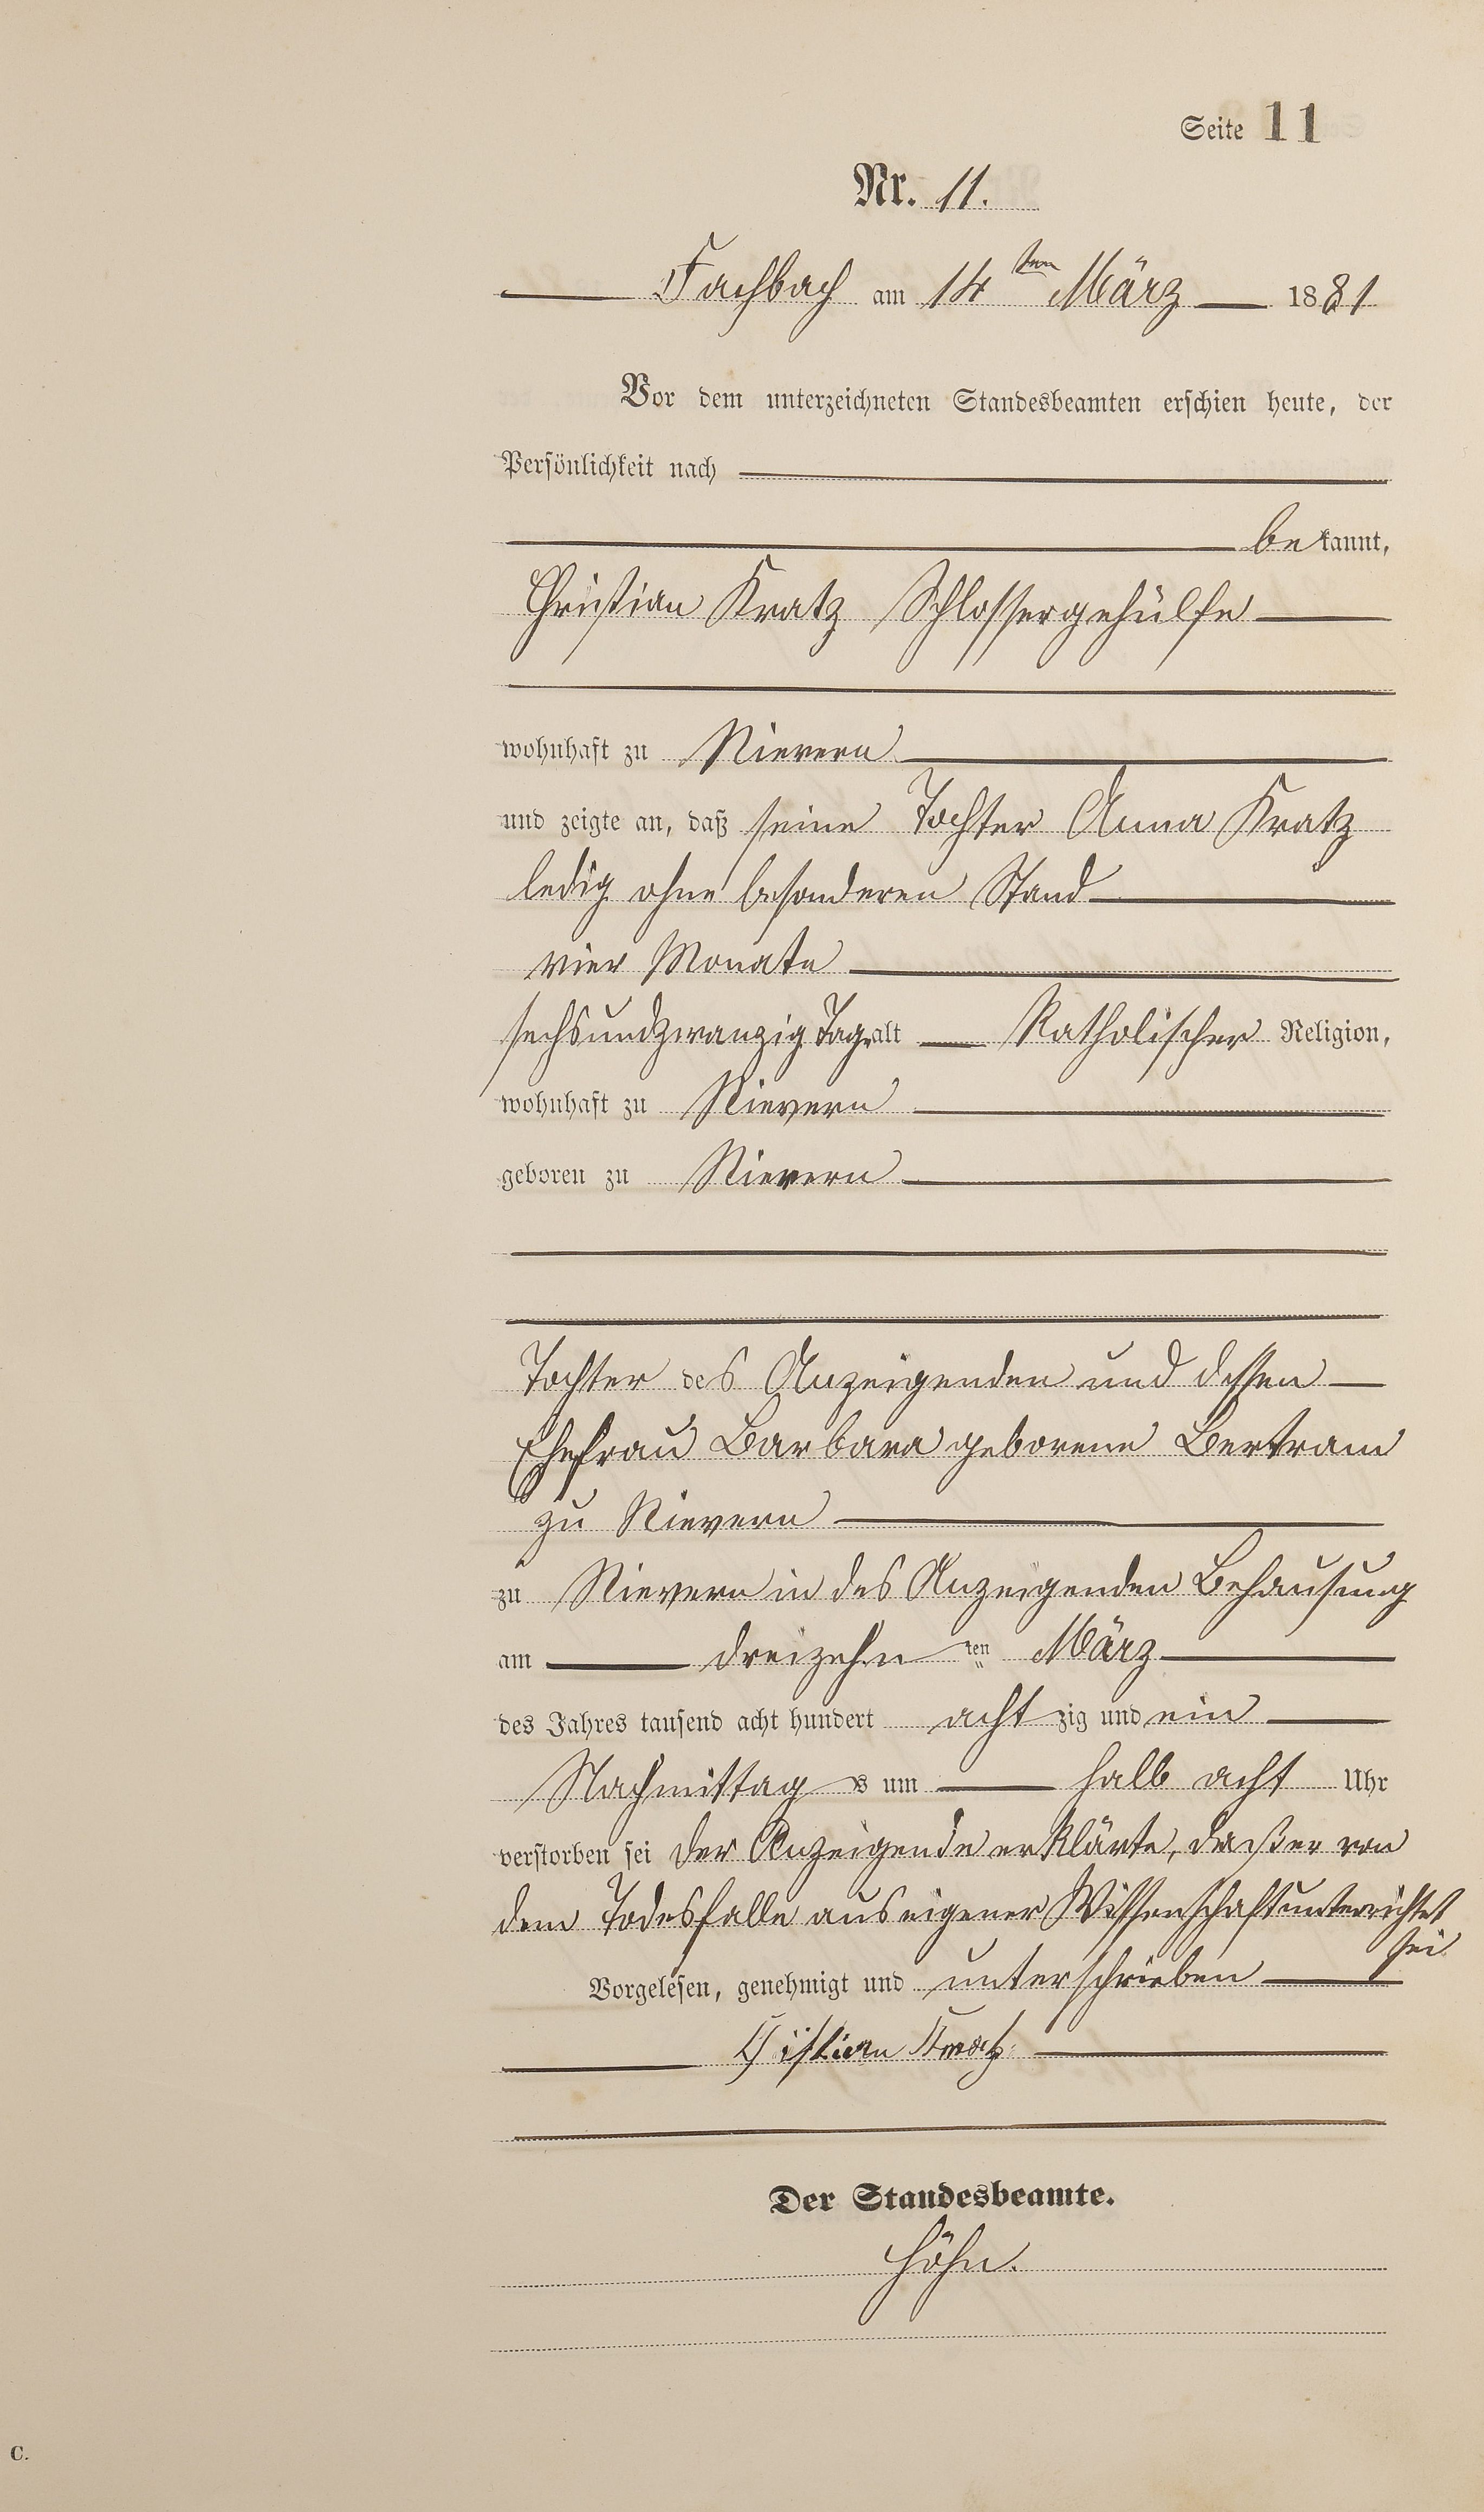 Seite 11
Nr. 11.
Fachbach am 14ten März 1881
Vor dem unterzeichneten Standesbeamten erschien heute, der
Persönlichkeit nach
bekannt,
Christian Kratz Schlossergehülfe
wohnhaft zu Nievern
und zeigte an, daß seine Tochter Anna Kratz
ledig ohne besonderen Stand
vier Monate
sechsundzwanzig Tage alt Katholischer Religion,
wohnhaft zu Nievern
geboren zu Nievern
Tochter des Anzeigenden und dessen
Ehefrau Barbara geborene Bertram
zu Nievern
zu Nievern in des Anzeigenden Behausung
am dreizehnten März
des Jahres tausend acht hundert achtzig und ein
Nachmittags um halb acht Uhr
verstorben sei der Anzeigende erklärte, daß er von
dem Todesfalle aus eigener Wissenschaft unterrichtet
sei
Vorgelesen, genehmigt und unterschrieben
Christian Kratz
Der Standesbeamte.
Höhn.
C.